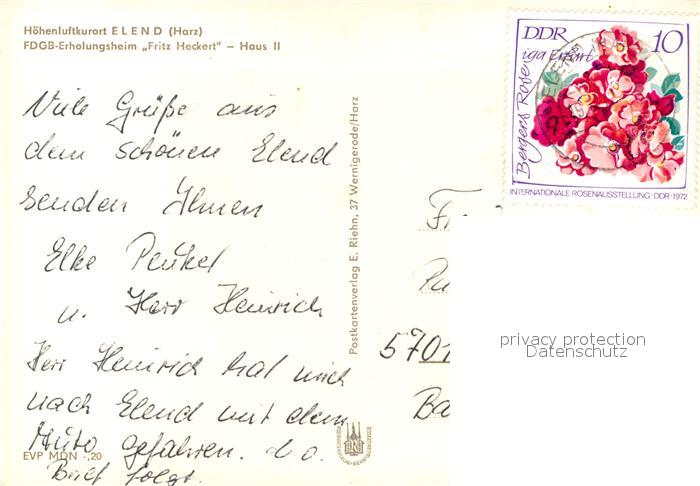 Höhenluftkurort ELEND (Harz)
FDGB-Erholungsheim „Fritz Heckert" – Haus II
Viele Grüße aus
dem schönen Elend
senden Ihnen
Elke
u. Herr Heinrich
Herr Heinrich hat mich
nach Elend mit dem
Auto gefahren.
Brief folgt.
EVP MDN -,20
Postkartenverlag E. Riehn, 37 Wernigerode/Harz
DDR 10
iga Erfurt
Bergers Rose
INTERNATIONALE ROSENAUSSTELLUNG · DDR · 1972
5701
Ba
privacy protection
Datenschutz